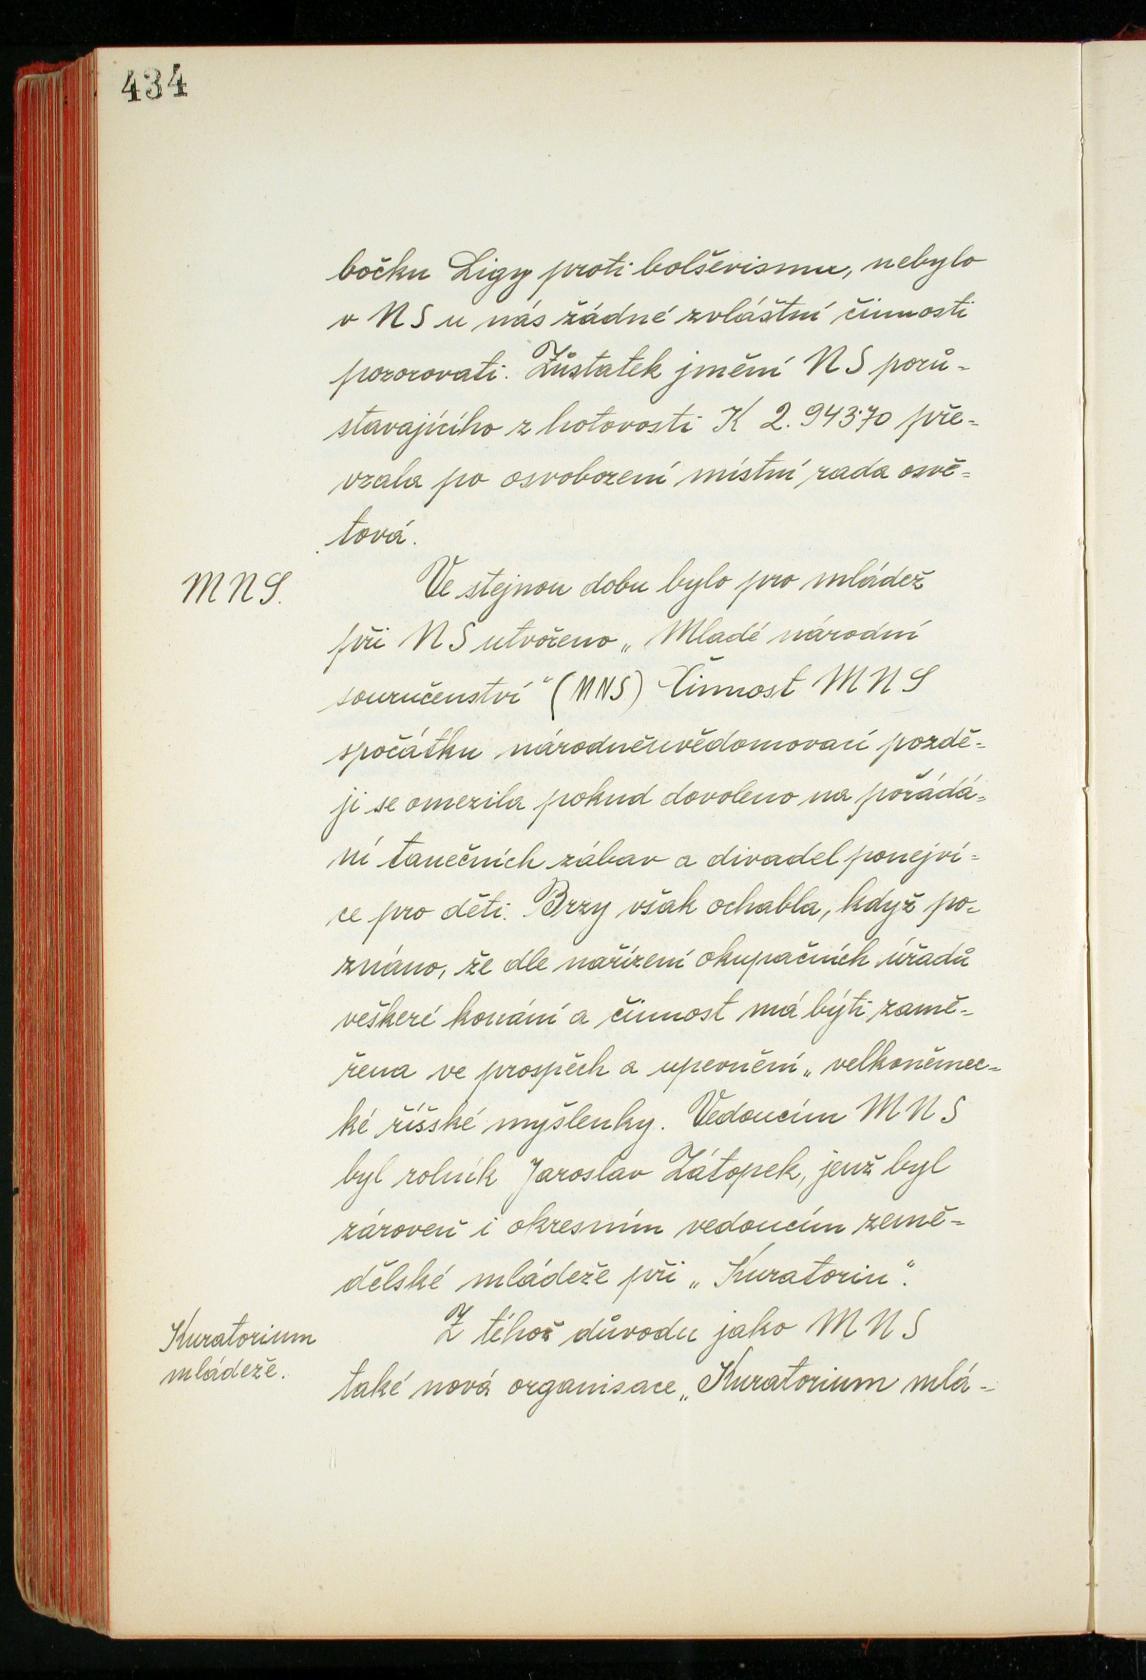 434
bočku Ligy proti bolševismu, nebylo
v NS u nás žádné zvláštní činnosti
pozorovati. Zůstatek jmění NS porů-
stavajícího z hotovosti K 2.943·70 pře-
vzala po osvobození místní rada osvě-
tová.
MNS.
Ve stejnou dobu bylo pro mládež
při NS utvořeno „Mladé národní
souručenství“ (MNS) Činnost MNS
spočátku národněuvědomovací pozdě-
ji se omezila pokud dovoleno na pořádá-
ní tanečních zábav a divadel ponejví-
ce pro děti. Brzy však ochabla, když po-
znáno, že dle nařízení okupačních úřadů
veškeré konání a činnost má býti zamě-
řena ve prospěch a upevnění „velkoněmec-
ké říšské myšlenky. Vedoucím MNS
byl rolník Jaroslav Zátopek, jenž byl
zároveň i okresním vedoucím země-
dělské mládeže při „Kuratoriu“.
Kuratorium
mládeže.
Z téhož důvodu jako MNS
také nová organisace „Kuratorium mlá-